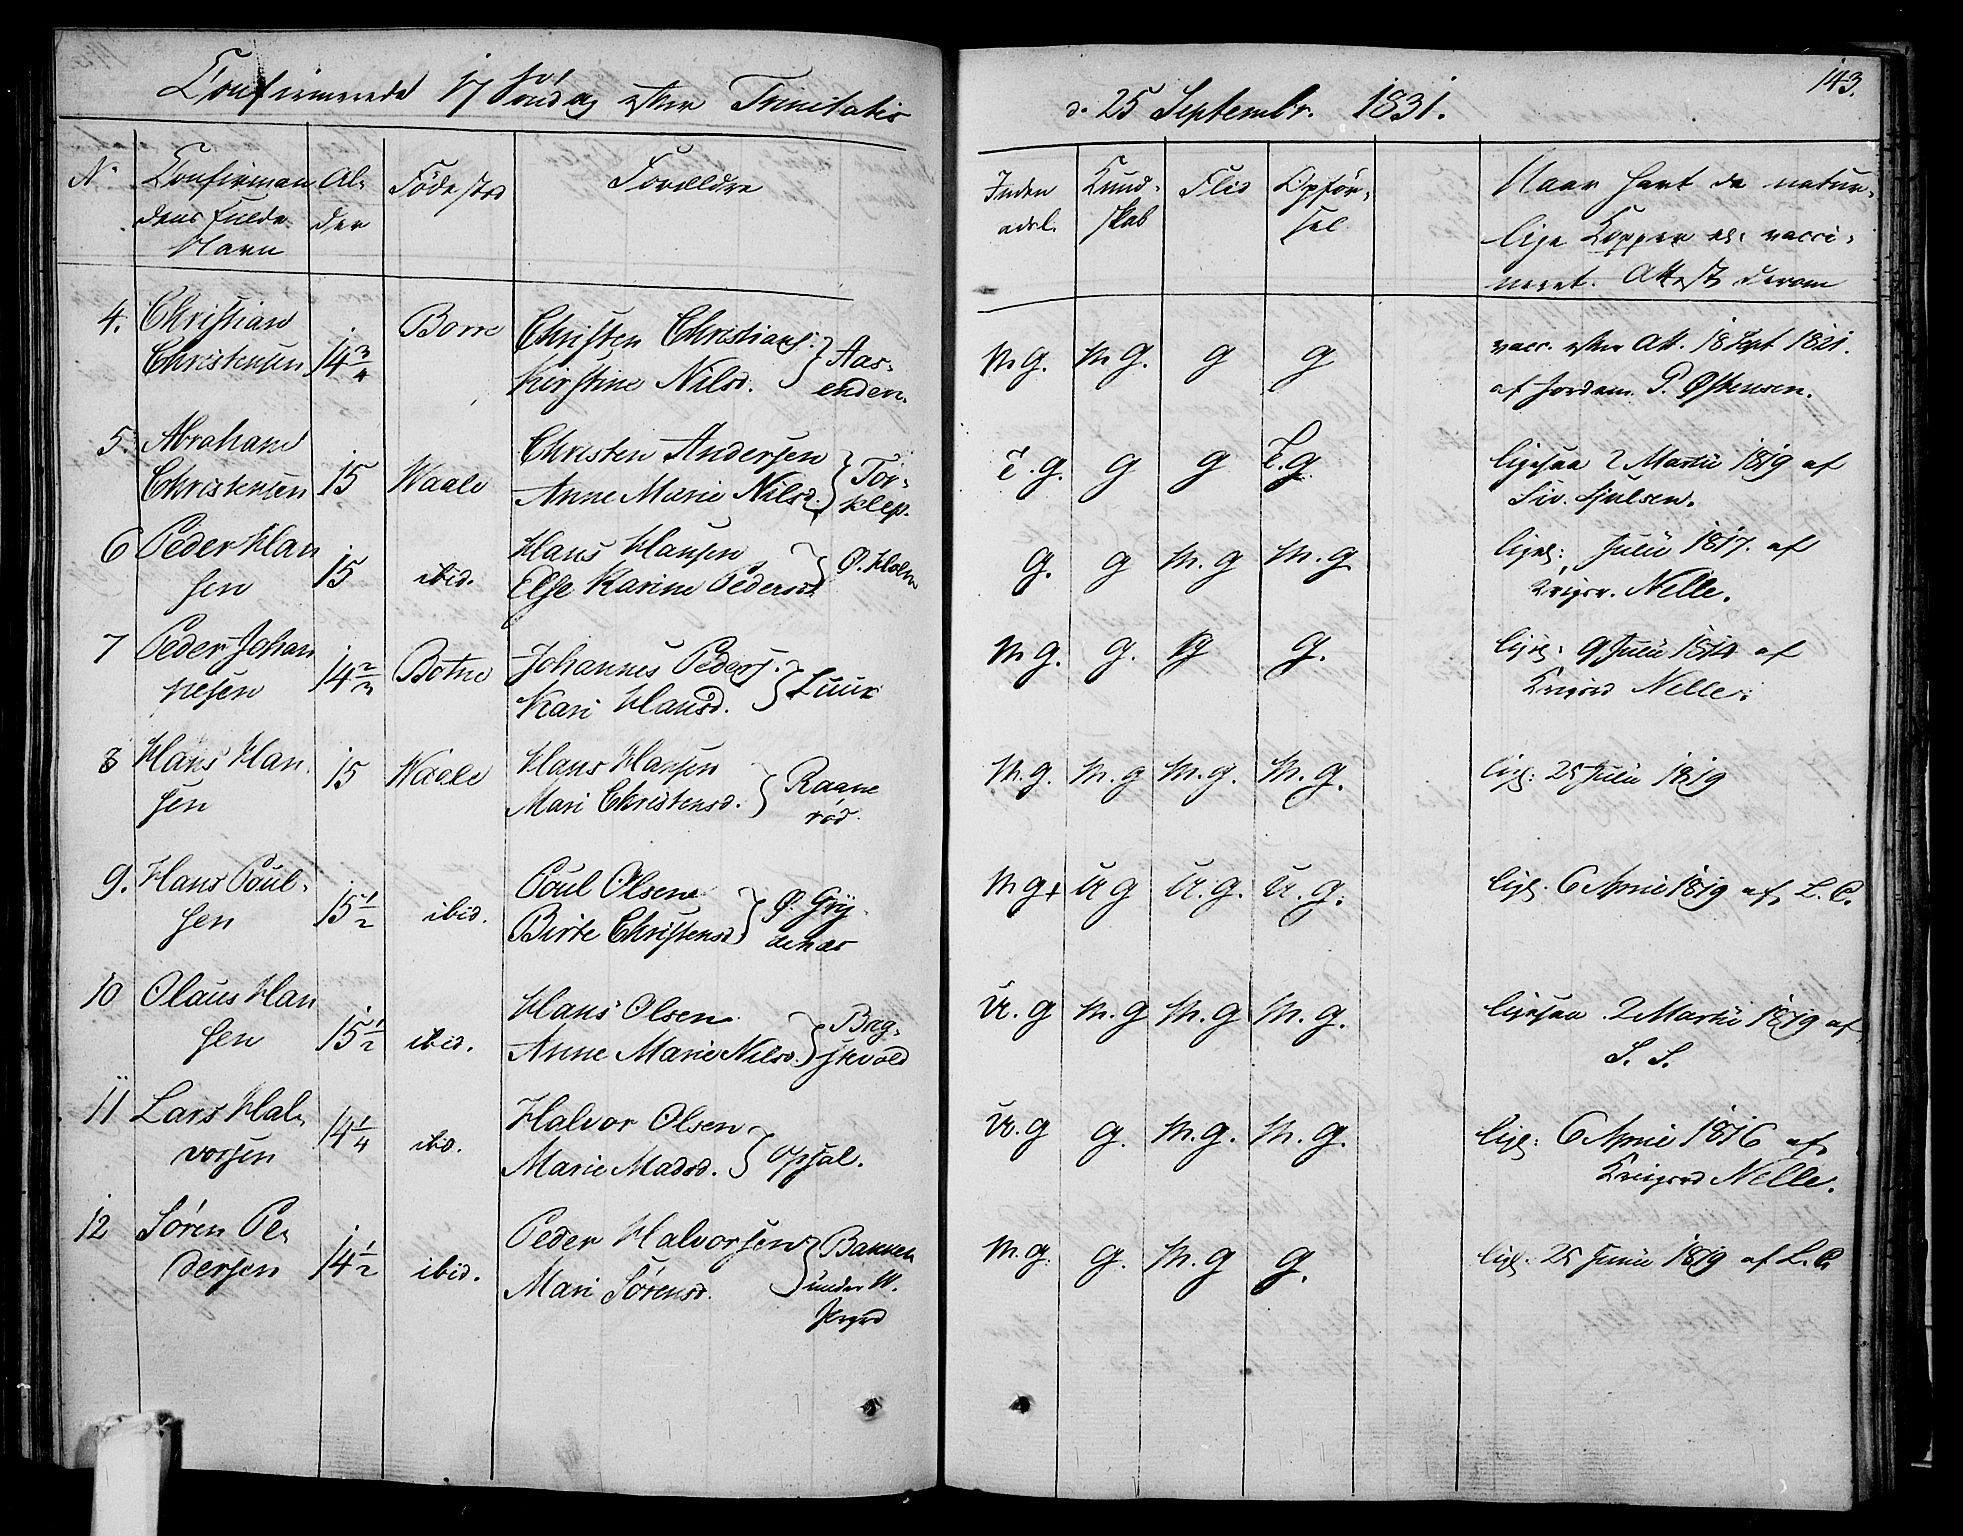 143.
Confirmerede 17 Søndag efter Trinitatis
d. 25 Septembr. 1831.
N.
Confirman
dens fulde
Navn
Al-
der
Fødested
Forældre
Inden
adsl.
Kund-
skab
Flid
Opfør-
sel
Naar havt de natur-
lige Kopper el. vacci-
neret. Attest derom
4. Christian
Christensen
14 3/4
Borre
Christen Christians.
Kirstine Nilsd.
Aas-
enden.
M G. M G. g g
vacc. efter Att. 18 Sept 1821.
af Jordem. P. Østensen.
5. Abraham
Christensen
15
Waale
Christen Andersen
Anne Marie Nilsd.
Tor-
klep.
T. g. g g T. g
ligesaa 2 Martii 1819 af
Siv. Sjulsen.
6 Peder Han
sen
15
ibid.
Hans Hansen
Else Karine Pedersd
Ø. Holm
g. g M. g M. g
ligel: Julii 1817. af
Krigsr. Nelle.
7 Peder Johan
nesen
14 2/3
Botne
Johannes Peders.
Kari Hansd.
Luur
M g. g. g g.
ligel: 9 Julii 1814 af
Krigsrd Nelle.
8 Hans Han
sen
15
Waale
Hans Hansen
Mari Christensd.
Raane
rød.
M. g. M. g M. g. M. g.
ligl: 25 Junii 1819
9. Hans Poul-
sen
15 1/2
ibid.
Poul Olsen
Birte Christensd
Ø. Gry
denæs
M g+ U g U. g. U. g.
ligl. 6 April 1819 af L. C.
10 Olaus Han
sen
15 1/2
ibid.
Hans Olsen
Anne Marie Nilsd.
Bæg-
skvold
U. g M. g M. g M. g.
ligesaa 2 Martii 1819 af
S. S.
11 Lars Hal-
vorsen
14 1/4
ibd.
Halvor Olsen
Marie Madsd.
Opsal.
U. g g. M. g. M. g.
ligl: 6 April 1816 af
Krigsrd Nelle.
12 Søren Pe-
dersen
14 1/2
ibid.
Peder Halvorsen
Mari Sørensd.
Bakken
under W.
M. g. g. M. g g.
ligl. 25 Junii 1819 af L. C.